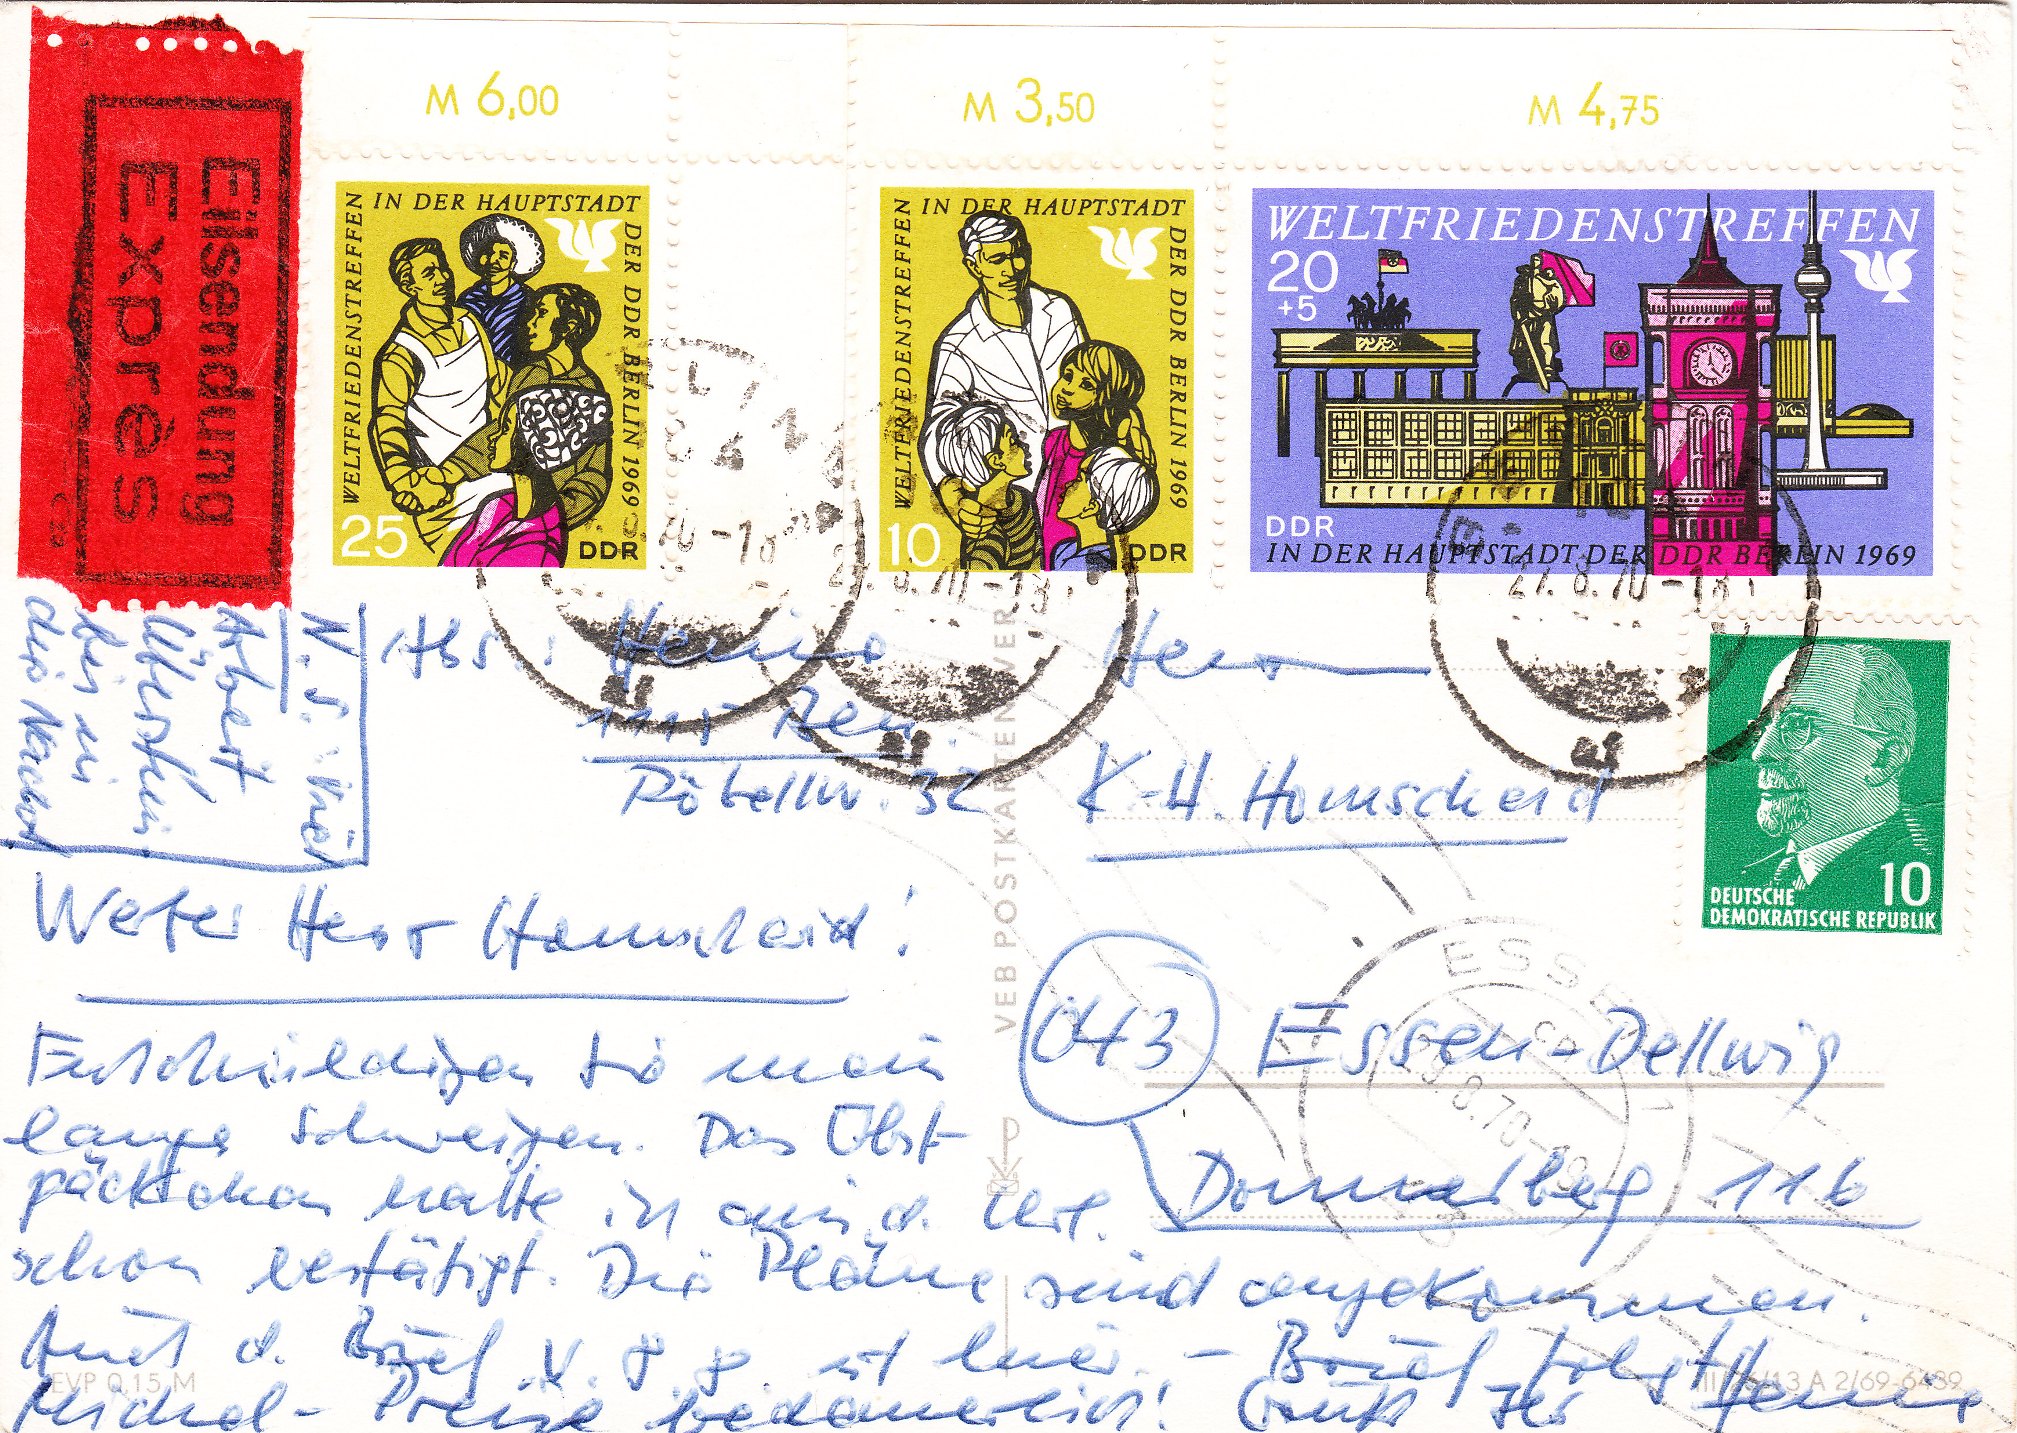 Eilsendung
Exprès
M 6,00
M 3,50
M 4,75
WELTFRIEDENSTREFFEN IN DER HAUPTSTADT DER DDR BERLIN 1969
25 DDR
WELTFRIEDENSTREFFEN IN DER HAUPTSTADT DER DDR BERLIN 1969
10 DDR
WELTFRIEDENSTREFFEN
20
+5
DDR
IN DER HAUPTSTADT DER DDR BERLIN 1969
27.8.70-18
10
DEUTSCHE
DEMOKRATISCHE REPUBLIK
N.S.
Arbeit
Überstun
bis in
die Nacht
Abs.: Henno
1115
Röbellw. 32
Herrn
K-H. Homscheid
043 Essen-Dellwig
Donnerberg 116
ESSEN
VEB POSTKARTENVER
Werter Herr Homscheid!
Entschuldigen Sie mein
lange Schweigen. Das Obst-
päckchen hatte ich aus d. Url.
schon bestätigt. Die Pläne sind angekommen.
Auch d. Brief v. 8.8. ist hier. - Brief folgt
Michel-Preise bedauerlich! Gruß Ihr Henno
EVP 0,15 M
A 2/69-6439